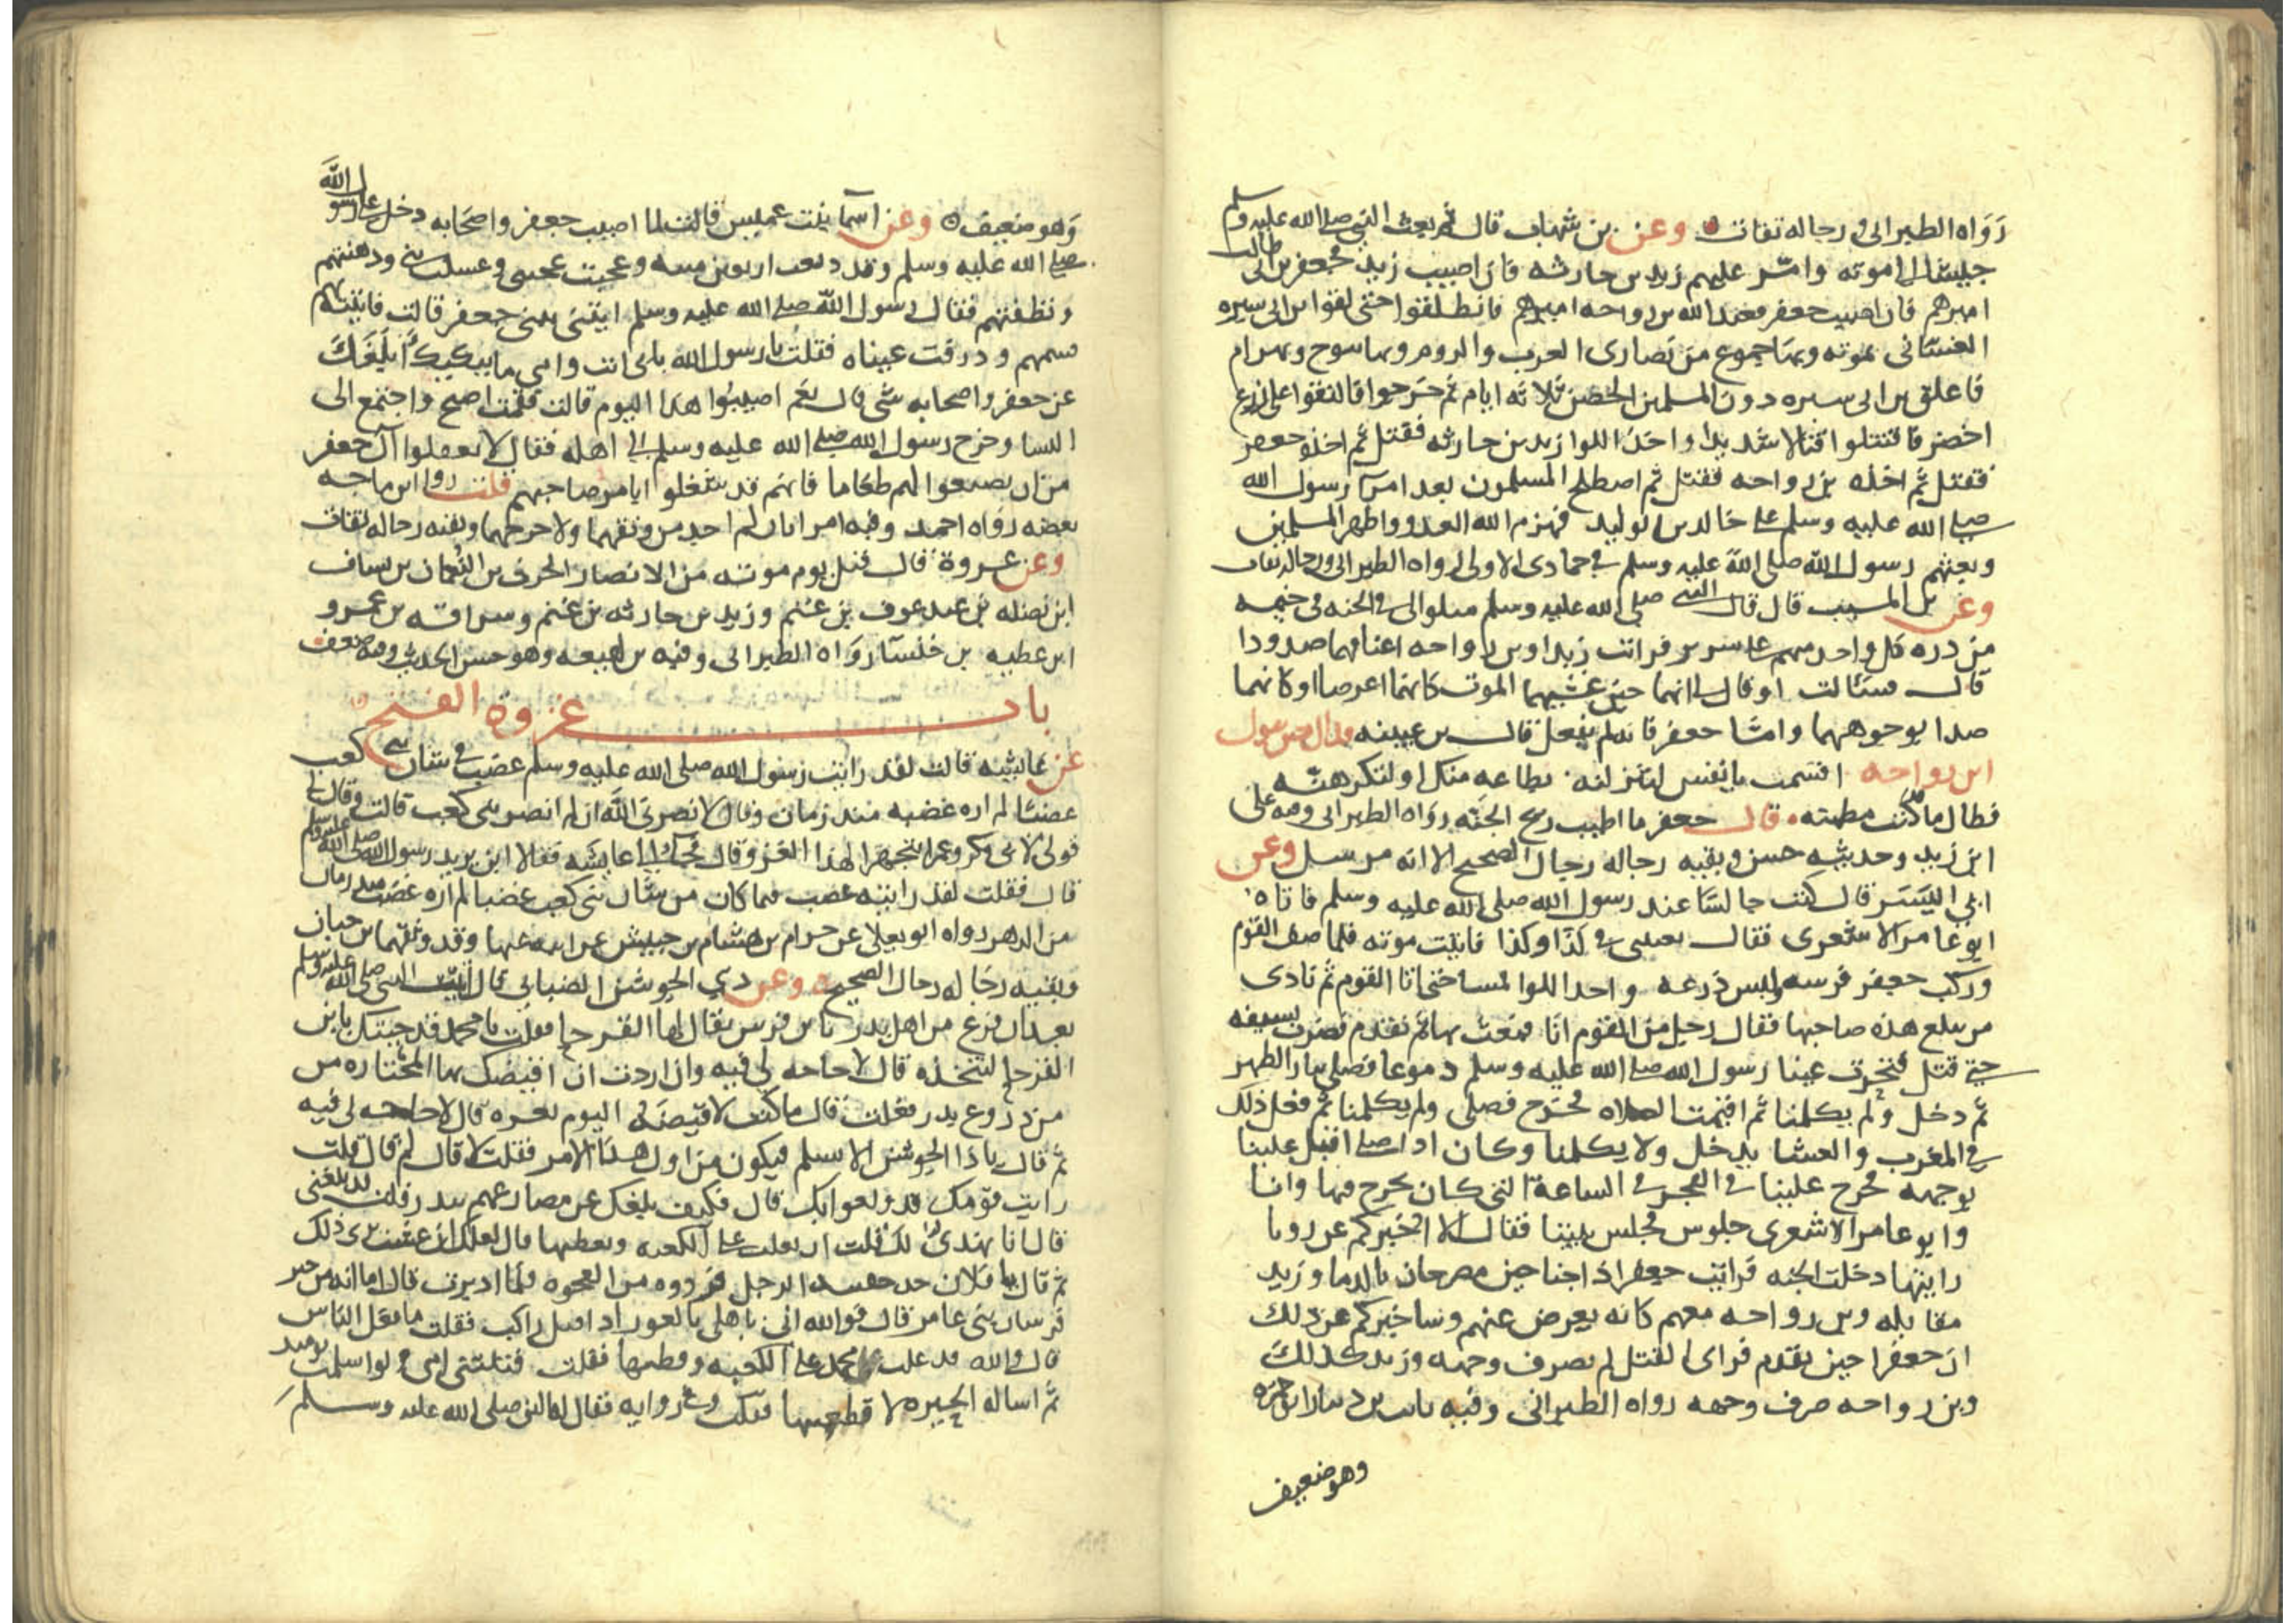 رواه الطبراني ورجاله ثقات وعن بن شهاب قال ثم بعث النبي صلى الله عليه وسلم
جيشا الى موته وامر عليهم زيد بن حارثه فان اصيب زيد فجعفر بن ابي طالب
اميرهم فان اصيب جعفر فعبد الله بن رواحه اميرهم فانطلقوا حتى لقوا بن ابي سبره
الغساني بموته وبها جموع من نصارى العرب والروم وبها تنوح وبهرام
فاغلق بن ابي سبره دون المسلمين الحصن ثلاثه ايام ثم خرجوا فالتقوا على زرع
اخضر فاقتتلوا قتالا شديدا واخذ اللوا زيد بن حارثه فقتل ثم اخذه جعفر
فقتل ثم اخذه بن رواحه فقتل ثم اصطلح المسلمون بعد امرآ رسول الله
صلى الله عليه وسلم على خالد بن الوليد فهزم الله العدو واظهر المسلمين
وبعثهم رسول الله صلى الله عليه وسلم في جمادى الاولى رواه الطبراني ورجاله ثقات
وعن بن المسيب قال قال النبي صلى الله عليه وسلم مثلوا لي في الجنه في خيمه
من دره كل واحد منهم على سرير فرايت زيدا وبن رواحه اعناقهما صدودا
قال فسئالت او قال لي انهما حين غشيهما الموت كانهما اعرضا او كانهما
صدا بوجوههما وامّا جعفر فانه لم يفعل قال بن عيينه فذلك حين يقول
ابن رواحه اقسمت يا نفس لتنزلنه بطاعه منك او لتكرهنّه
فطال ما قد كنت مطمئنه قال جعفر ما اطيب ريح الجنّه رواه الطبراني وفيه على
ابن زيد وحديثه حسن وبقيه رجاله رجال الصحيح الا انه مرسل وعن
ابي اليَسَر قال كنت جالسًا عند رسول الله صلى الله عليه وسلم فاتاه
ابو عامر الاشعرى فقال بعثتني في كذا وكذا فاتيت موته فلما صف القوم
وركب جعفر فرسه ولبس درعه واخذ اللوا فمشا حتى اتا القوم ثم نادى
من يبلغ هذه صاحبها فقال رجل من القوم انا فبعث بها ثم تقدم فضرب بسيفه
حتى قتل فتحدرت عينا رسول الله صلى الله عليه وسلم دموعا فصلى بنا الظهر
ثم دخل ولم يكلمنا ثم اقيمت الصلاه فخرج فصلى ولم يكلمنا ثم فعل ذلك
في المغرب والعشا يدخل ولا يكلمنا وكان اذا صلى اقبل علينا
بوجهه فخرج علينا في الفجر في الساعة التي كان يخرج فيها وانا
وابو عامر الاشعرى جلوس فجلس بيننا فقال الا اخبركم عن رويا
رايتها دخلت الجنه فرايت جعفرا ذا جناحين مضرجان بالدما وزيد
مقابله وبن رواحه معهم كانه يعرض عنهم وساخبركم عن ذلك
ان جعفرا حين تقدم فراى القتل لم يصرف وجهه وزيد كذلك
وبن رواحه صرف وجهه رواه الطبراني وفيه ثابت بن دينار ابو حمزه
وهو ضعيف
وهو ضعيف وعن اسما بنت عميس قالت لما اصيب جعفر واصحابه دخل علي رسول الله
صلى الله عليه وسلم وقد دبغت اربعين منيه وعجنت عجيني وغسلت بني ودهنتهم
ونظفتهم فقال رسول الله صلى الله عليه وسلم ايتني ببني جعفر قالت فاتيته بهم
فشمهم وذرفت عيناه فقلت يا رسول الله بابي انت وامي ما يبكيك أبلغك
عن جعفر واصحابه شي قال نعم اصيبُوا هذا اليوم قالت فقمت اصيح واجتمع الى
النسا وخرج رسول الله صلى الله عليه وسلم الى اهله فقال لا تغفلوا آل جعفر
من ان تصنعوا لهم طعاما فانهم قد شغلوا بامر صاحبهم قلت روا ابن ماجه
بعضه رواه احمد وفيه امراتان لم احد من وثقهما ولا جرحهما وبقيه رجاله ثقات
وعن عروة قال قتل يوم موته من الانصار الحرث بن النعمان بن يساف
ابن نضله بن عبد عوف بن غنم وزيد بن حارثه بن غنم وسراقه بن عمرو
ابن عطيه بن خنسآ رواه الطبراني وفيه بن لهيعه وهو حسن الحديث وفيه ضعف
باب غزوة الفتح
عن عائشه قالت لقد رايت رسول الله صلى الله عليه وسلم غضب في شان بني كعب
غضبًا لم اره غضبه منذ زمان وقال لا نصرني الله ان لم انصر بني كعب قالت وقال لي
قولي لابي بكر وعمر يتجهزا لهذا الغزو قال فجآا الى عايشه فقالا اين يريد رسول الله صلى الله عليه وسلم
قال فقلت لقد رايته غضب فيما كان من شان بني كعب غضبا لم اره غضبه منذ زمان
من الدهر رواه ابو يعلى عن حزام بن هشام بن حبيش عن ابيه عنها وقد وثقهما بن حبان
وبقيه رجاله رجال الصحيح وعن ذي الجوشن الضبابي قال اتيت النبي صلى الله عليه وسلم
بعد ان فرغ من اهل بدر بابن فرس يقال لها القرحا فقلت يا محمد قد جيتك بابن
القرحا لتتخذه قال لا حاجه لي فيه وان اردت ان اقيضك بها المختاره من
من دروع بدر فعلت فقال ما كنت لاقيضه اليوم بغره قال لا حاجه لي فيه
ثم قال يا ذا الجوشن الا تسلم فيكون من اول هذا الامر فقلت لا قال لم قال قلت
رايت قومك قد ولعوا بك قال فكيف بلغك عن مصارعهم ببدر قلت قد بلغني
قال انا نهدي لك قلت ان تغلب على الكعبه وتقطنها قال لعلك ان عشت ترى ذلك
ثم قال يا فلان خذ حقيبه الرجل فزودوه من العجوه ولما ادبرت قال اما انه من خير
فرسان بني عامر قال فوالله اني باهلي بالغور اذ اقبل راكب فقلت ما فعل الناس
قال والله قد غلب محمد على الكعبه وقطنها فقلت هبلتني امي ولو اسلمت يومئذ
ثم اساله الحيره لاقطعنيها وفي روايه فقال له النبي صلى الله عليه وسلم